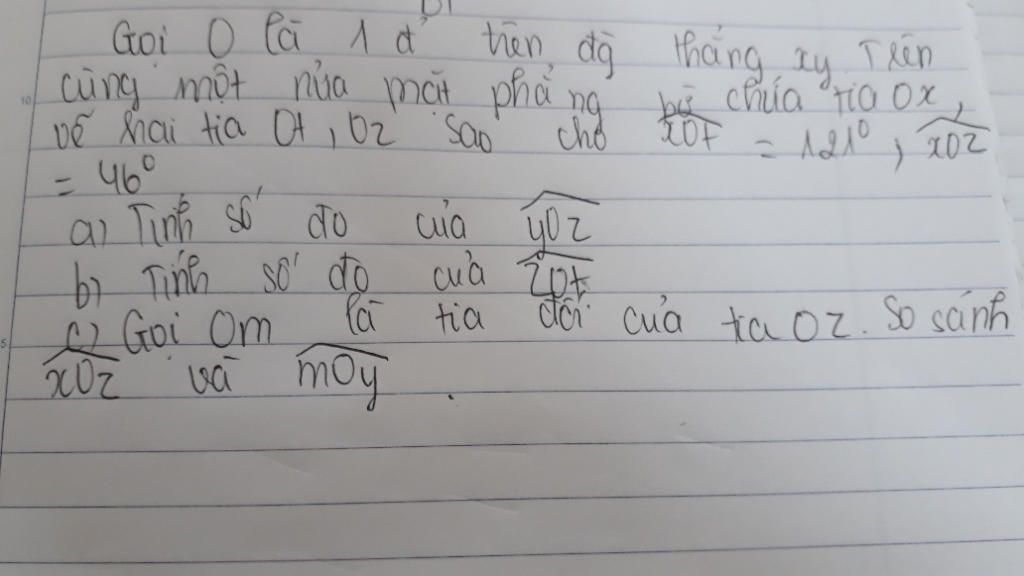 Gọi O là 1 đ' trên đg thẳng xy. Trên
cùng một nửa mặt phẳng bờ chứa tia Ox,
vẽ hai tia Ot, Oz sao cho xOt = 121°, xOz
= 46°
a) Tính số đo của yOz
b) Tính số đo của zOt
c) Gọi Om là tia đối của tia Oz. So sánh
xOz và mOy.